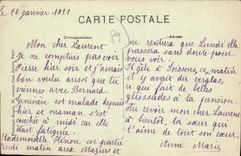 le 20 janvier 1921
CARTE POSTALE
Correspondance
Adresse
Mon cher Laurent
Je ne comptais pas voir
Pierre hier soir et j'aurais
bien voulu aussi que tu
viennes avec Bernard.
Geneviève est malade depuis
hier et maman s'est
couchée à midi car elle
était fatiguée.
Mademoiselle Henon est partie
lundi matin aux
ne rentrera que lundi elle
passera sans doute pour
vous voir.
Il gèle à Soissons, ce matin
il y avait du verglas,
ce qui fait de belles
glissades à la pension.
Au revoir mon cher Laurent
à bientôt, ta sœur qui
t'aime de tout son cœur.
Anne Marie